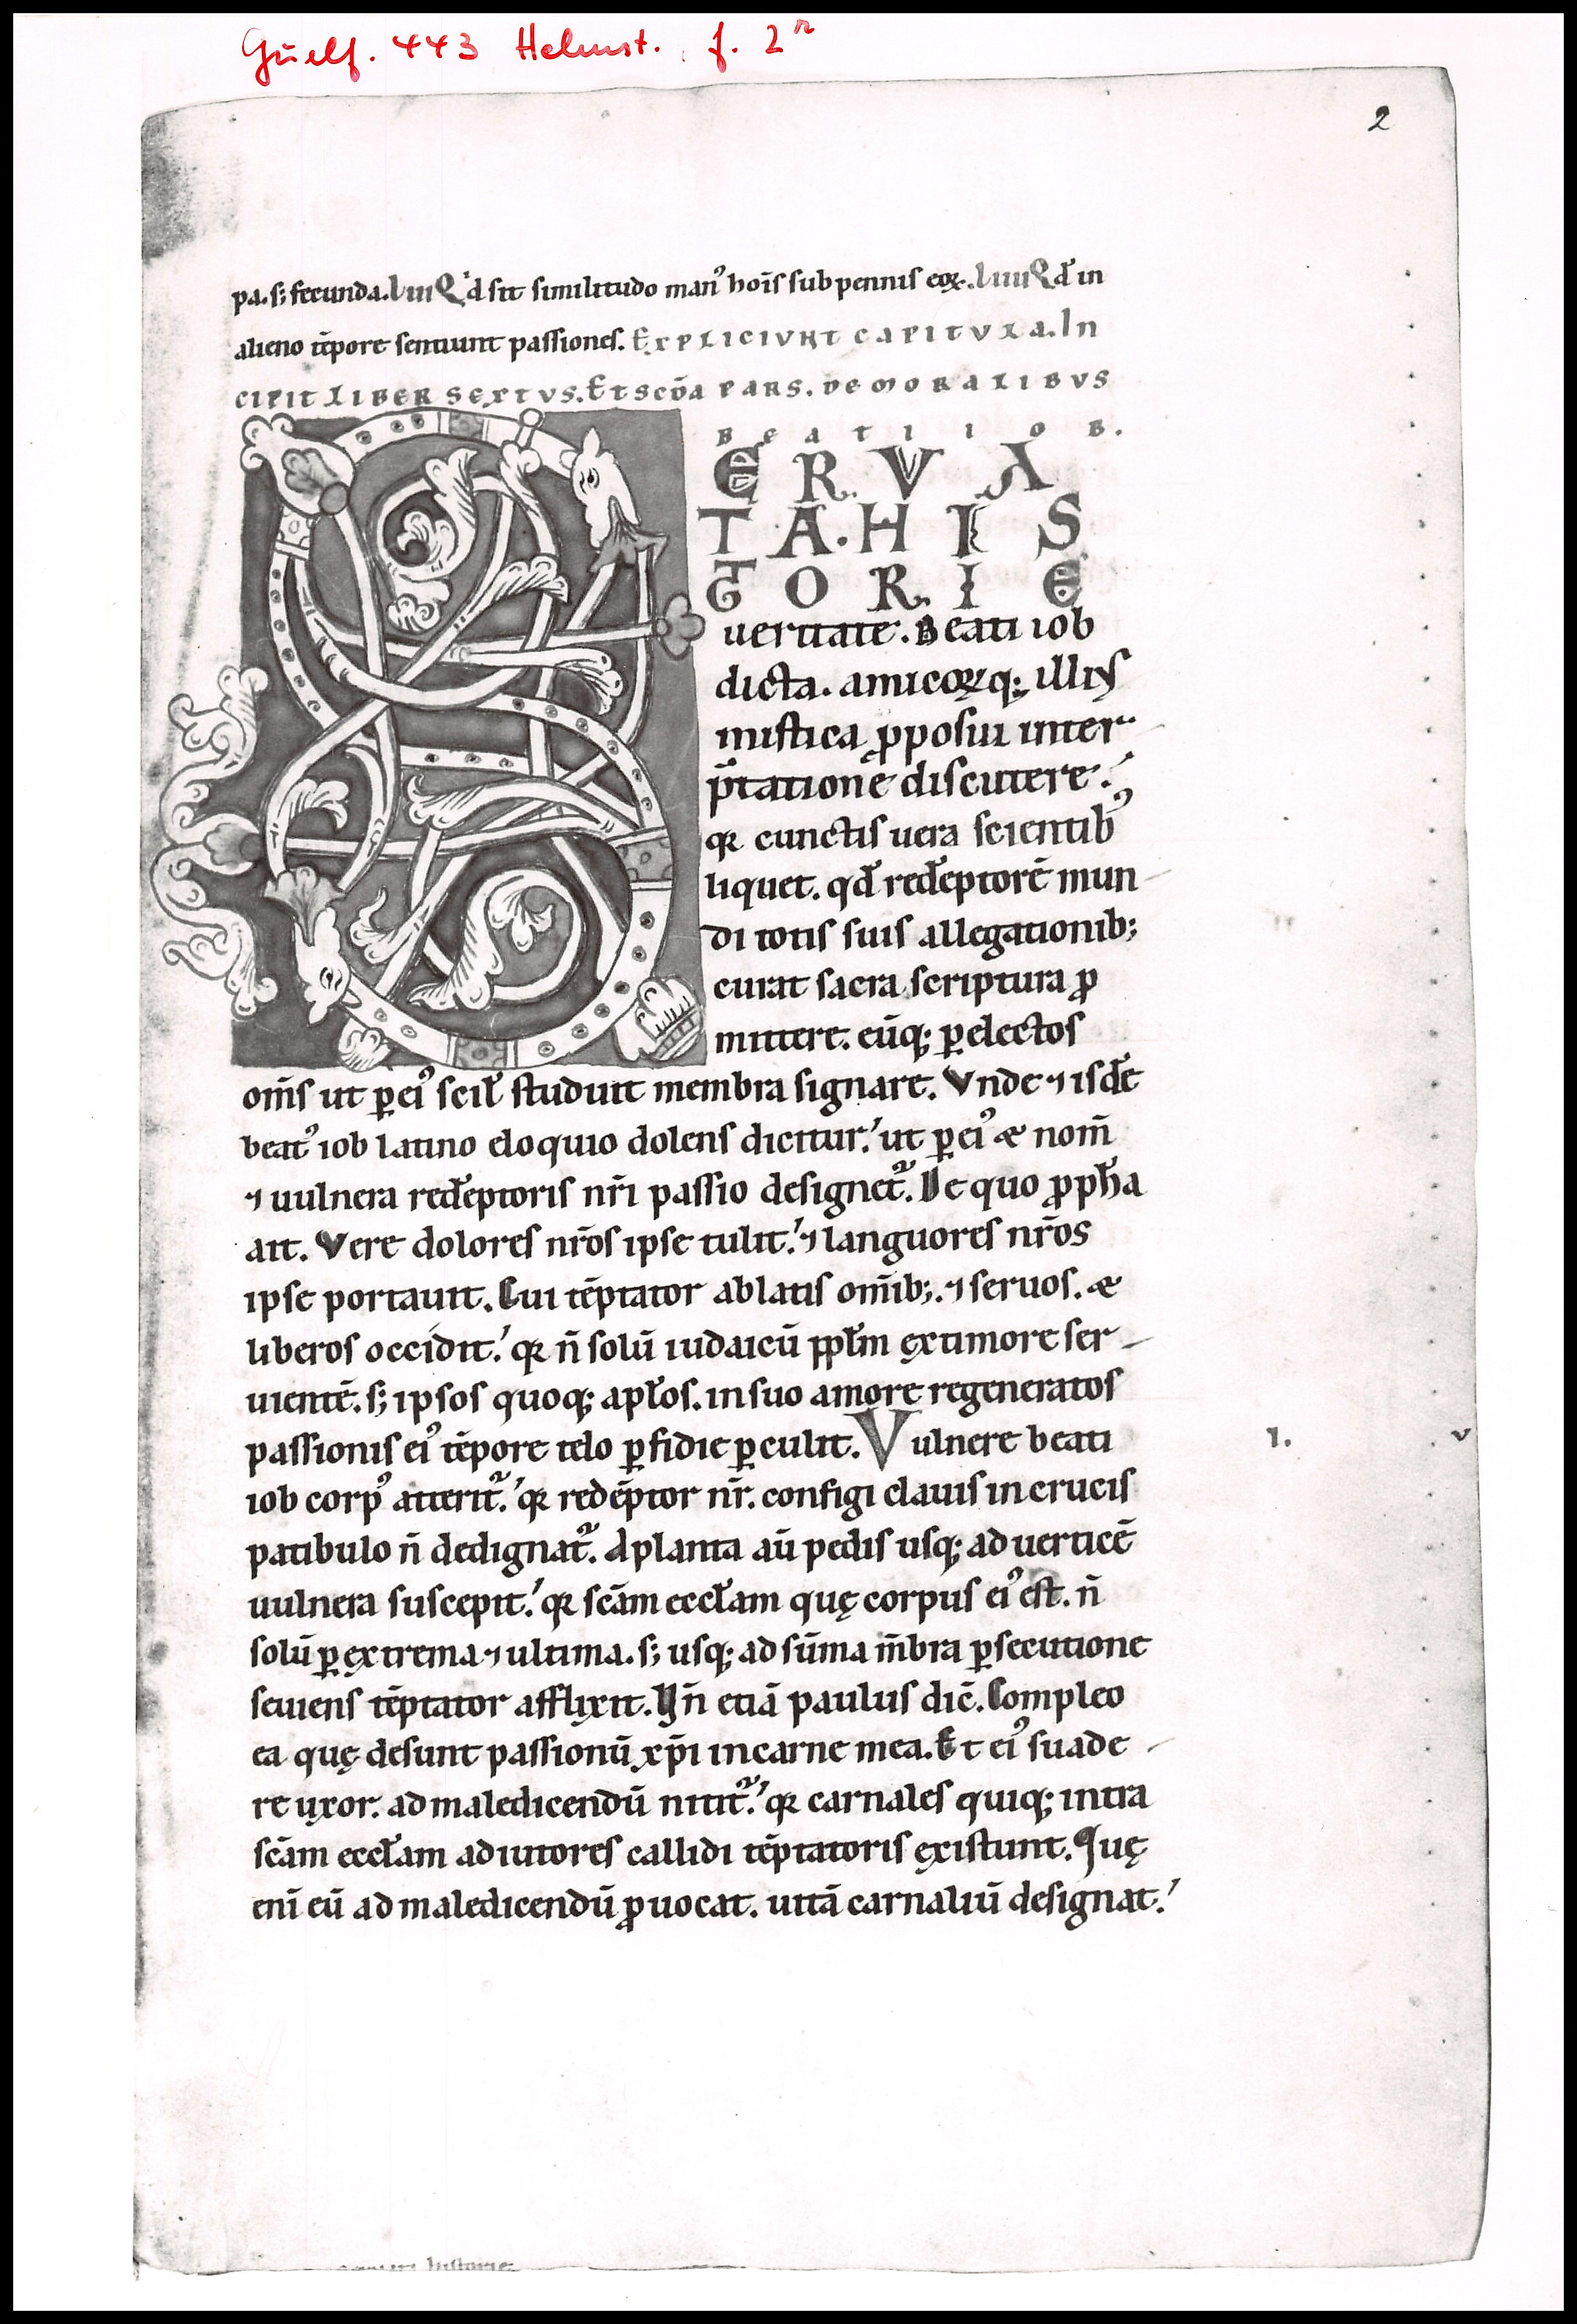 Guelf. 443 Helmst. f. 2r
2
pa. s; fecunda. LIII Qd sit similitudo man᾽ hoīs sub pennis eoꝝ. LIIII Qđ in
alieno tēpore sentiunt passiones. EXPLICIVNT CAPITVLA. IN
CIPIT LIBER SEXTVS. ET SCDA PARS. DE MORALIBVS
BEATI IOB.
SERVA
TA. HIS
TORIE
ueritate. Beati iob
dicta. amicoꝝq; illiꝰ
mistica ꝓposui inter
p̄tationē discutere.
qꝛ cunctis uera scientibꝰ
liquet. qđ redēptorē mun
di totis suis allegationib;
curat sacra scriptura ꝓ
mittere. eūq; ꝑ electos
om̄s ut ꝑ eiꝰ scił studuit membra signare. Vnde ⁊ isdē
beatꝰ iob latino eloquio dolens dicitur. ut ꝑ eiꝰ & nom̄
⁊ uulnera redēptoris nr̄i passio designet᷑. De quo ꝓpħa
ait. Vere dolores nr̄os ipse tulit. ⁊ languores nr̄os
ipse portauit. Cui tēptator ablatis om̄ib;. ⁊ seruos. &
liberos occidit. qꝛ n̄ solū iudaicū ppłm ex timore ser
uientē. s; ipsos quoq; apłos. in suo amore regeneratos
passionis eiꝰ tēpore telo ꝑfidie ꝑculit. Vulnere beati
1.
v
iob corpꝰ atterit᷑. qꝛ redēptor nr̄. configi clauis in crucis
patibulo n̄ dedignat᷑. A planta aū pedis usq; ad uerticē
uulnera suscepit. qꝛ scām eccłam quę corpus eiꝰ est. n̄
solū ꝑ extrema ⁊ ultima. s; usq; ad sūma m̄bra ꝑsecutione
seuiens tēptator afflixit. Hn̄ etiā paulus dic̄. Compleo
ea quę desunt passionū xp̄i in carne mea. Et eiꝰ suade
re uxor. ad maledicendū nitit᷑. qꝛ carnales quiq; intra
scām eccłam adiutores callidi tēptatoris existunt. Quę
enī eū ad maledicendū ꝓuocat. uitā carnaliū designat.